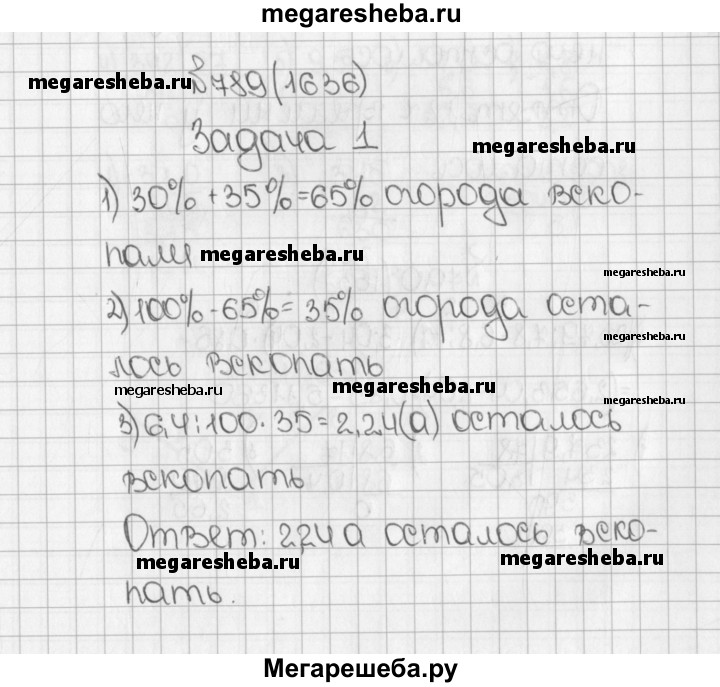 megaresheba.ru
№789(1636)
megaresheba.ru
Задача 1
megaresheba.ru
1) 30% + 35% = 65% огорода вско-
пали
megaresheba.ru
megaresheba.ru
2) 100% - 65% = 35% огорода оста-
лось вскопать
megaresheba.ru
megaresheba.ru
megaresheba.ru
3) 6,4 : 100 · 35 = 2,24(а) осталось
вскопать
Ответ: 2,24 а осталось вско-
megaresheba.ru
megaresheba.ru
пать.
Мегарешеба.ру